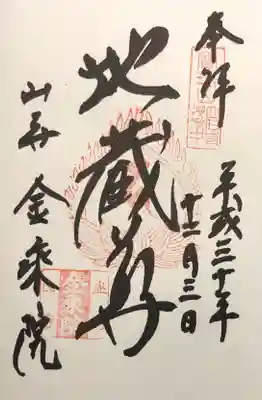 奉拝
平成三十年
十二月三日
地蔵尊
金乘院